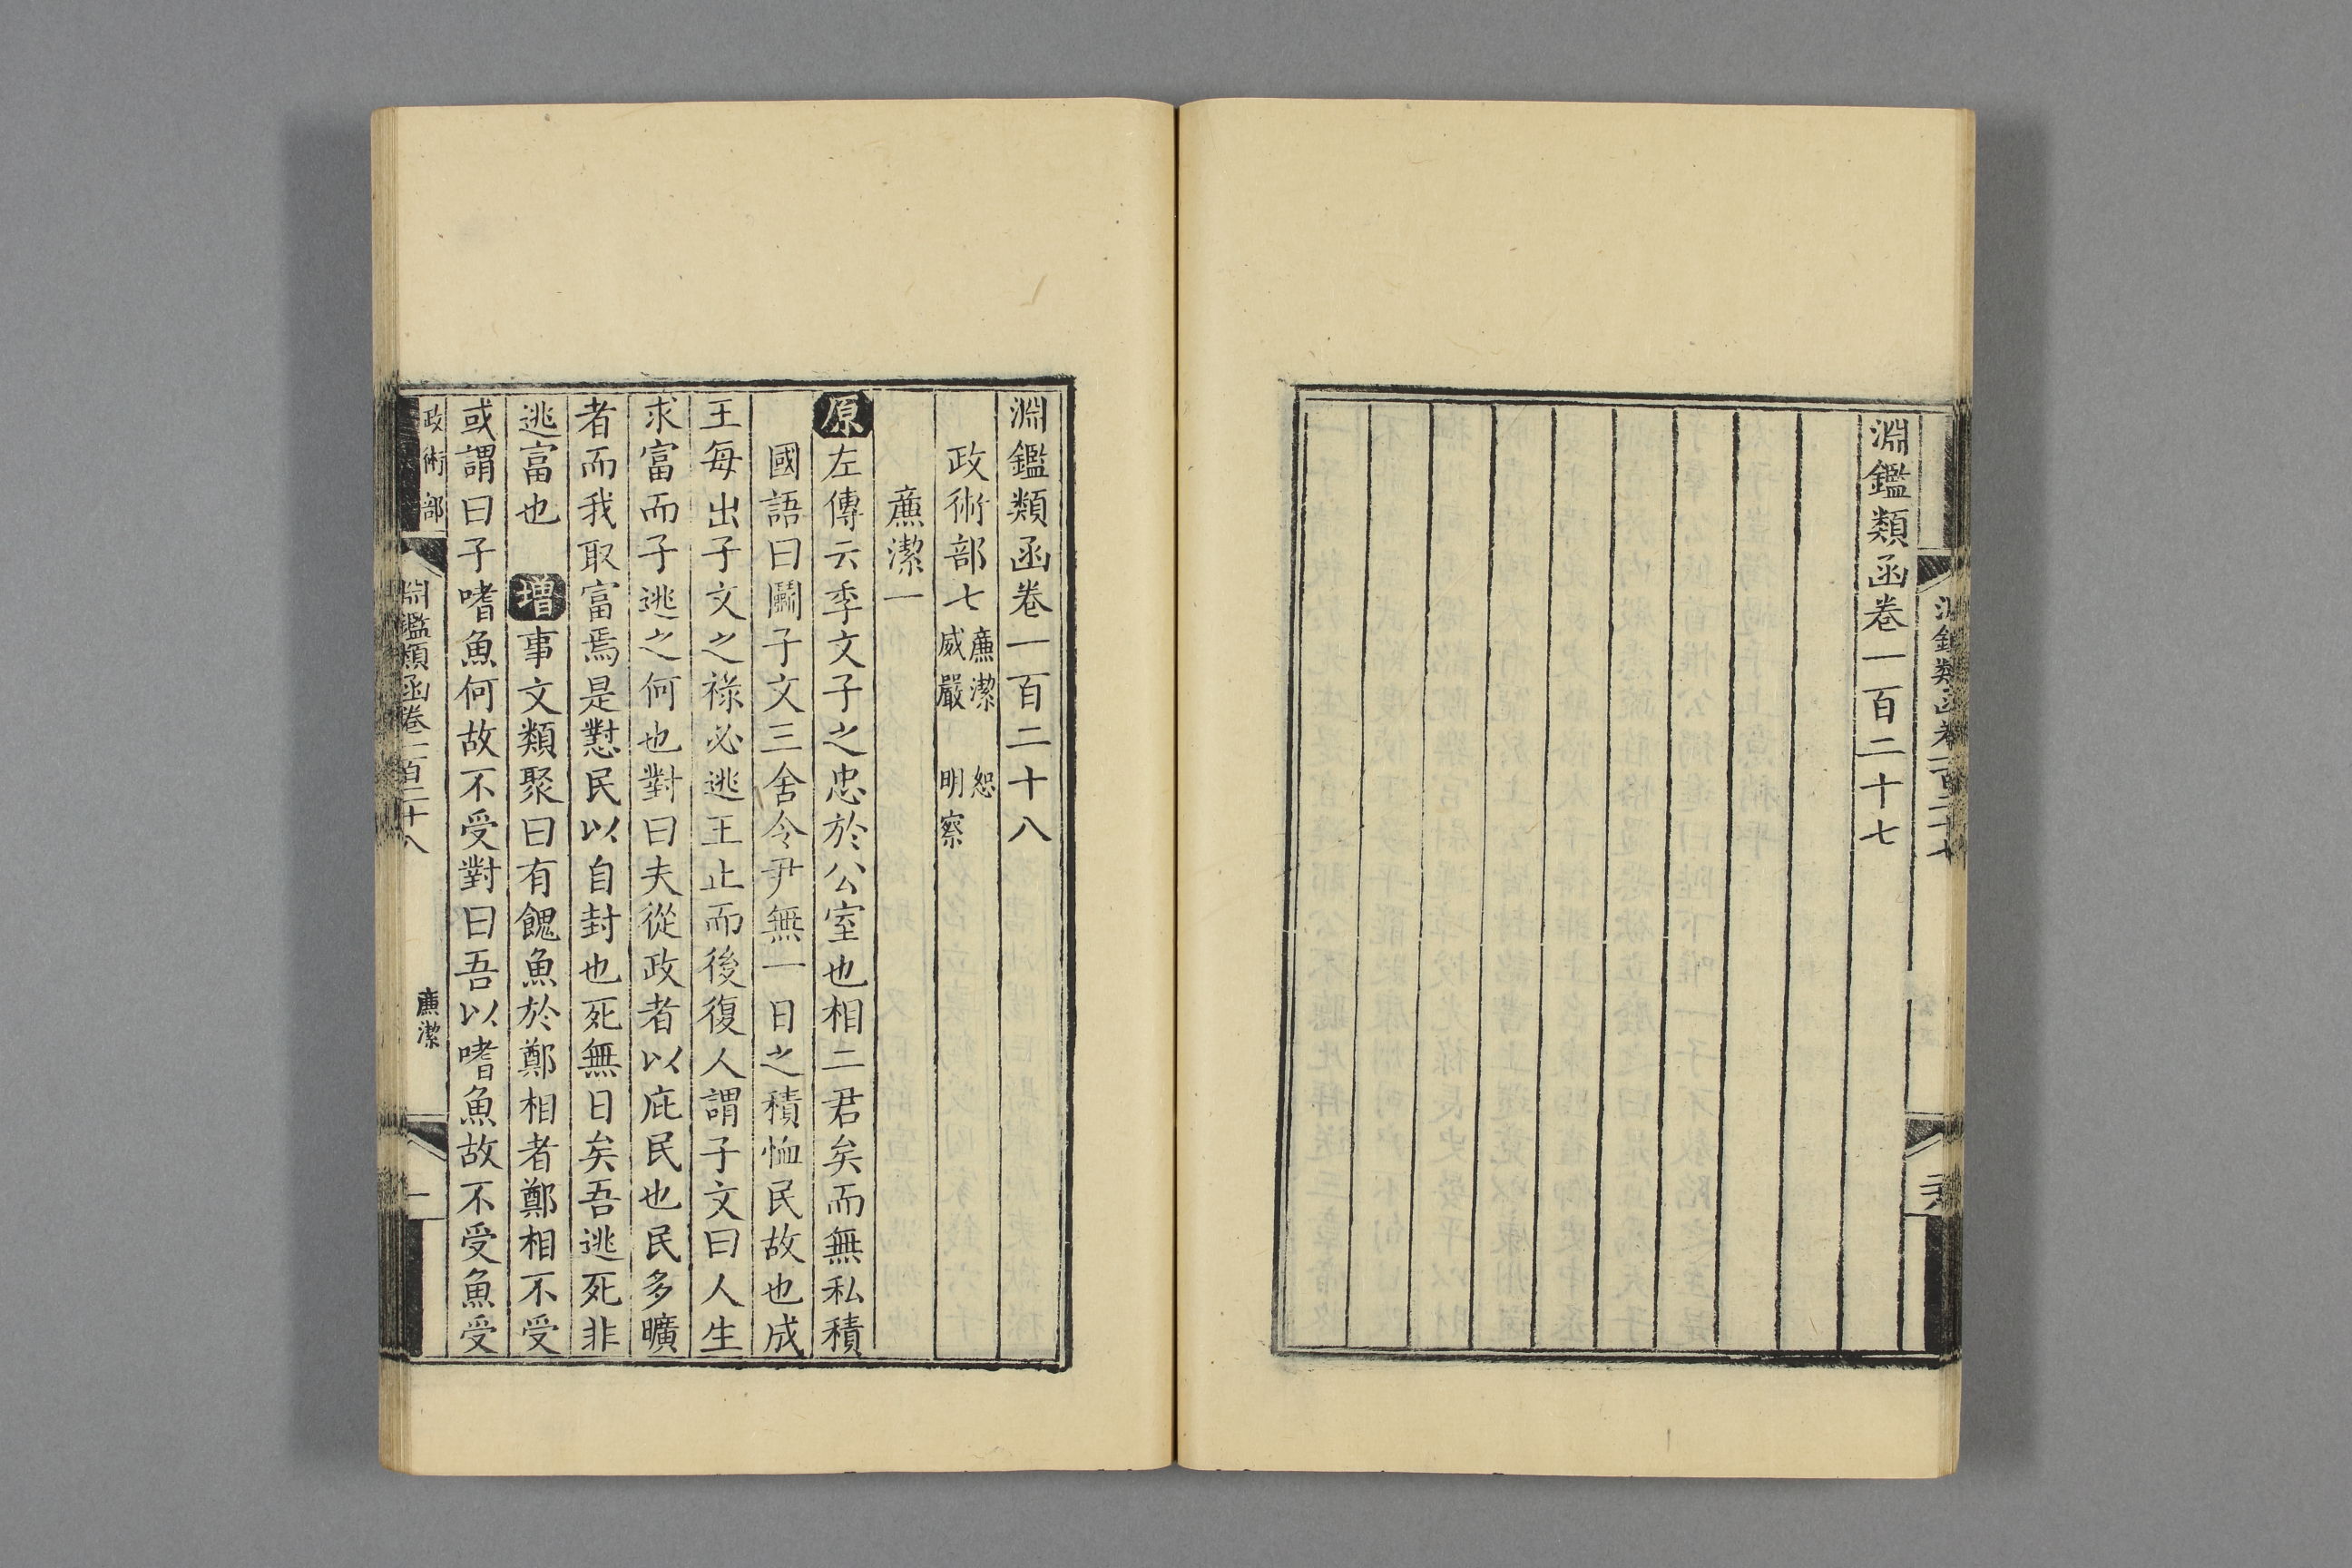 淵鑑類函卷一百二十七
淵鑑類函卷一百二十七
淵鑑類函卷一百二十八
政術部七 廉潔 恕 威嚴 明察
廉潔一
原左傳云季文子之忠於公室也相二君矣而無私積
國語曰鬭子文三舍令尹無一日之積恤民故也成
王每出子文之祿必逃王止而後復人謂子文曰人生
求富而子逃之何也對曰夫從政者以庇民也民多曠
者而我取富焉是懟民以自封也死無日矣吾逃死非
逃富也 增事文類聚曰有餽魚於鄭相者鄭相不受
或謂曰子嗜魚何故不受對曰吾以嗜魚故不受魚受
政術部 淵鑑類函卷一百二十八 廉潔 一